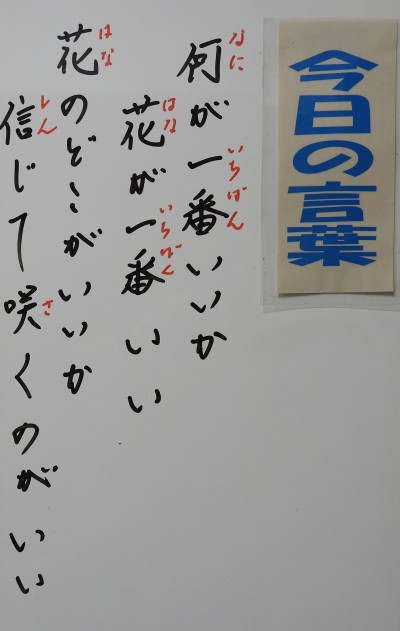 今日の言葉
なに いちばん
何が一番いいか
はな いちばん
花が一番いい
はな
花のどこがいいか
しん さ
信じて咲くのがいい